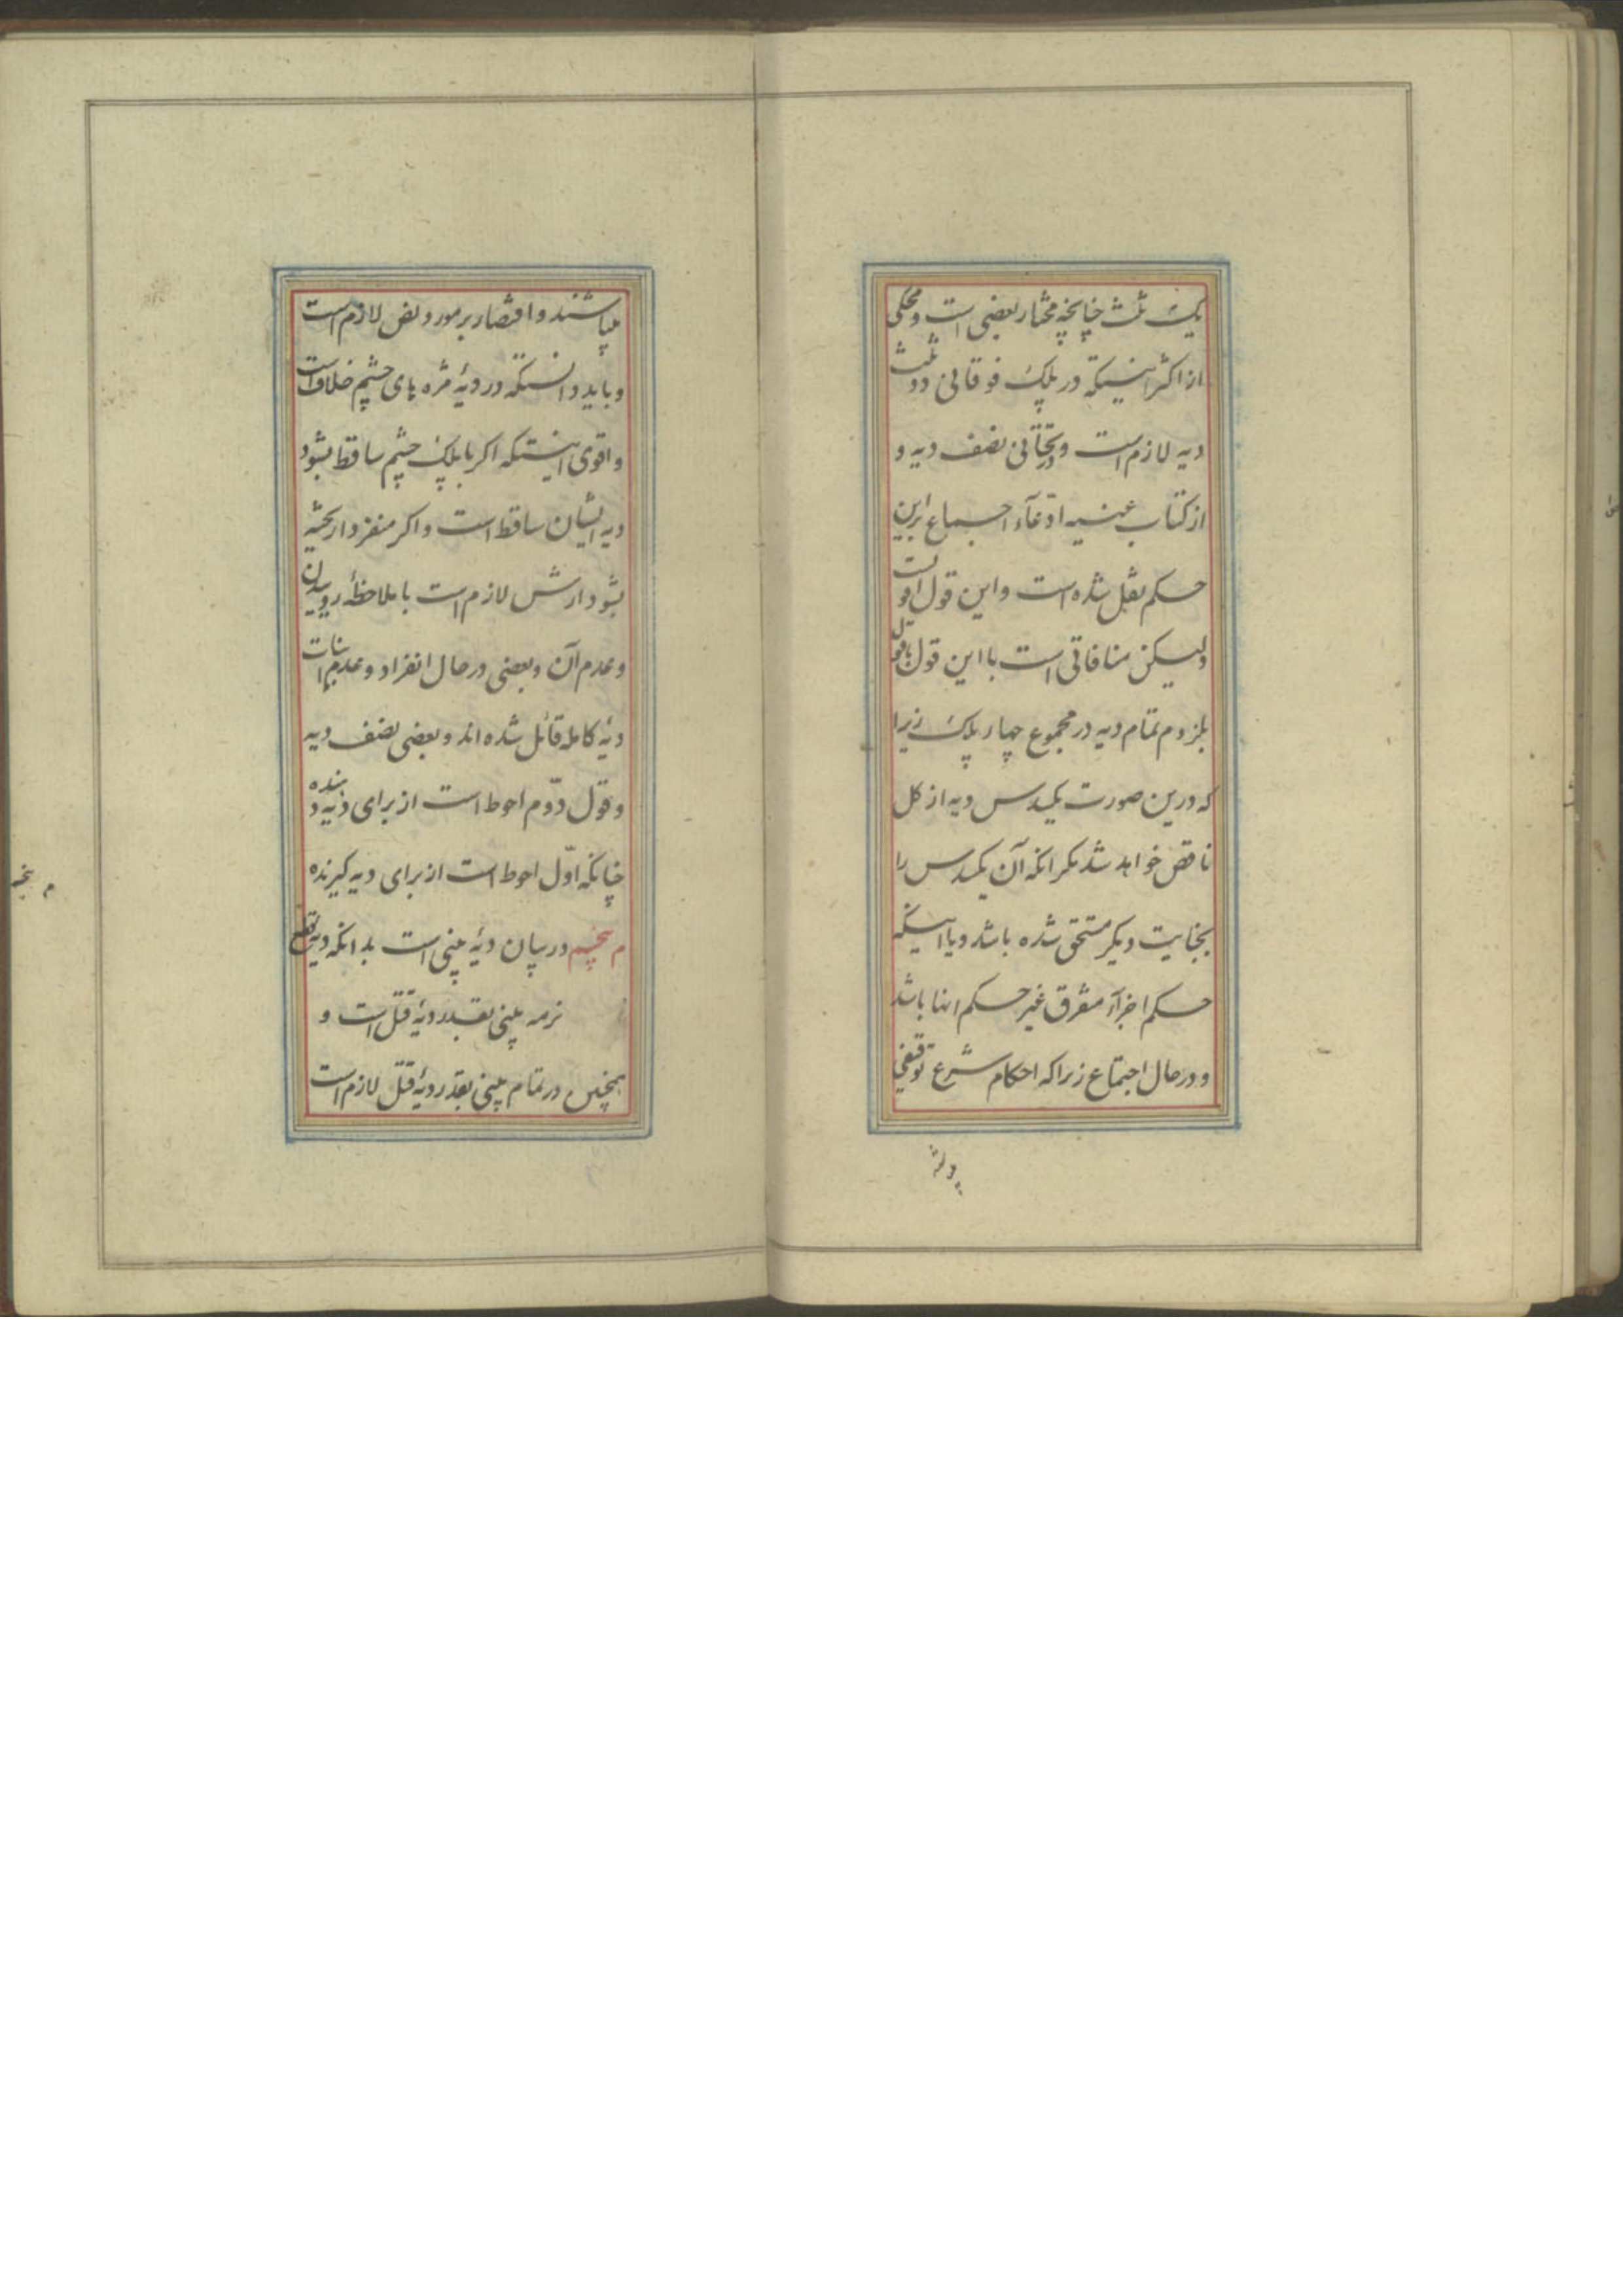 یک ثلث چنانچه مختار بعضی است و محکی
از اکثر اینستکه در پلک فوقانی دو ثلث
دیه لازم است و در تحتانی نصف دیه و
از کتاب غنیه ادّعآء اجماع براین
حکم نقل شده است و این قول اقوا است
ولیکن منافاتی است با این قول با قول
بلزوم تمام دیه در مجموع چهار پلک زیرا
که درین صورت یکسدس دیه از کل
ناقص خواهد شد مکر انکه آن یکسدس را
بجنایت دیکر مستحق شده باشد و یا اینکه
حکم اجزآء متفرق غیر حکم انها باشد
و در حال اجتماع زیرا که احکام شرع توقیفی
میباشند و اقتصار بر مورد نص لازم است
و باید دانستکه در دیهٔ مژه های چشم خلاف است
و اقوی اینستکه اکر با پلک چشم ساقط بشود
دیه ایشان ساقط است و اکر منفردا ریخته
بشود ارش لازم است با ملاحظهٔ روییدن
و عدم آن و بعضی در حال انفراد و عدم انبات
دیهٔ کامله قائل شده اند و بعضی نصف دیه
و قول دوّم احوط است از برای دیه دهنده
چنانکه اوّل احوط است از برای دیه کیرنده
م پنجم در بیان دیهٔ بینی است بدانکه دیه قطع
نرمه بینی بقدر دیهٔ قتل است و
همچنین در تمام بینی بقدر دیهٔ قتل لازم است
م پنجم